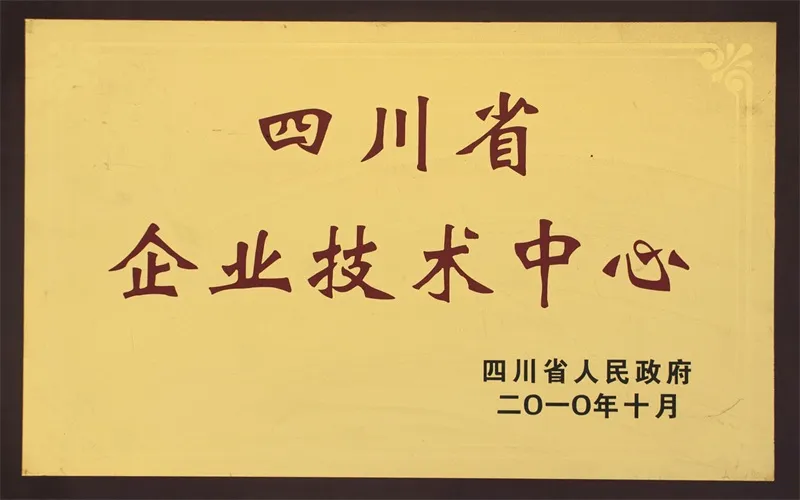 四川省
企业技术中心
四川省人民政府
二O一O年十月